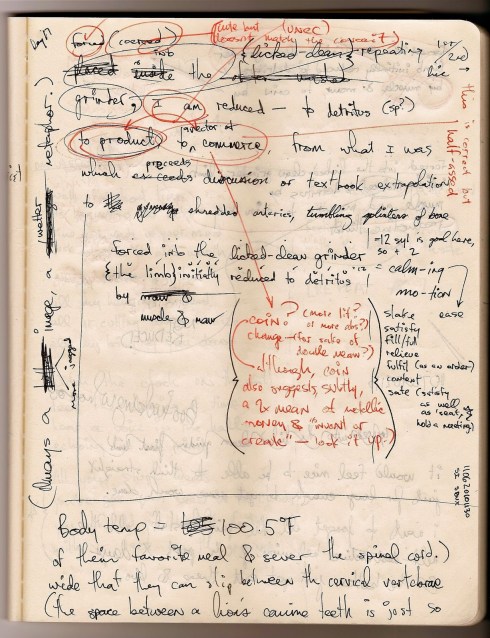 forced (coerced
cute but (UNRC)
doesn't match the conceit)
into
{licked-clean} repeating
1st/
2nd →
inside the
his
grinder, I am reduced — to detritus (sp?)
to product, to commerce, from what I was
vector of
which exceeds discussion or textbook extrapolation
proceeds
to shredded arteries, tumbling goliaters of bone
this is forced but
half-assed
forced into the licked-clean grinder
{the limb} initially reduced to detritus
by
muscle & maw
-12 syl is goal here,
so + 2
= calm-ing
mo-tion
ease
COIN? (more lit?
or more abs?)
change—(for sake of
double mean?)
although, coin
also suggests, subtly,
a 2x mean of metallic
money & "invent or
create" — look it up!
slake
satisfy
fill/ful
relieve
fulfil (as an order)
content
sate (satisfy
as well
as 'seat,' or
hold a meeting)
(Always a image, a metaphor.)
matter
more jagged
Body temp = 100.5°F
of their favorite meal & sever the spinal cord.)
wide that they can slip between th cervical vertebrae
(the space between a lion's canine teeth is just so